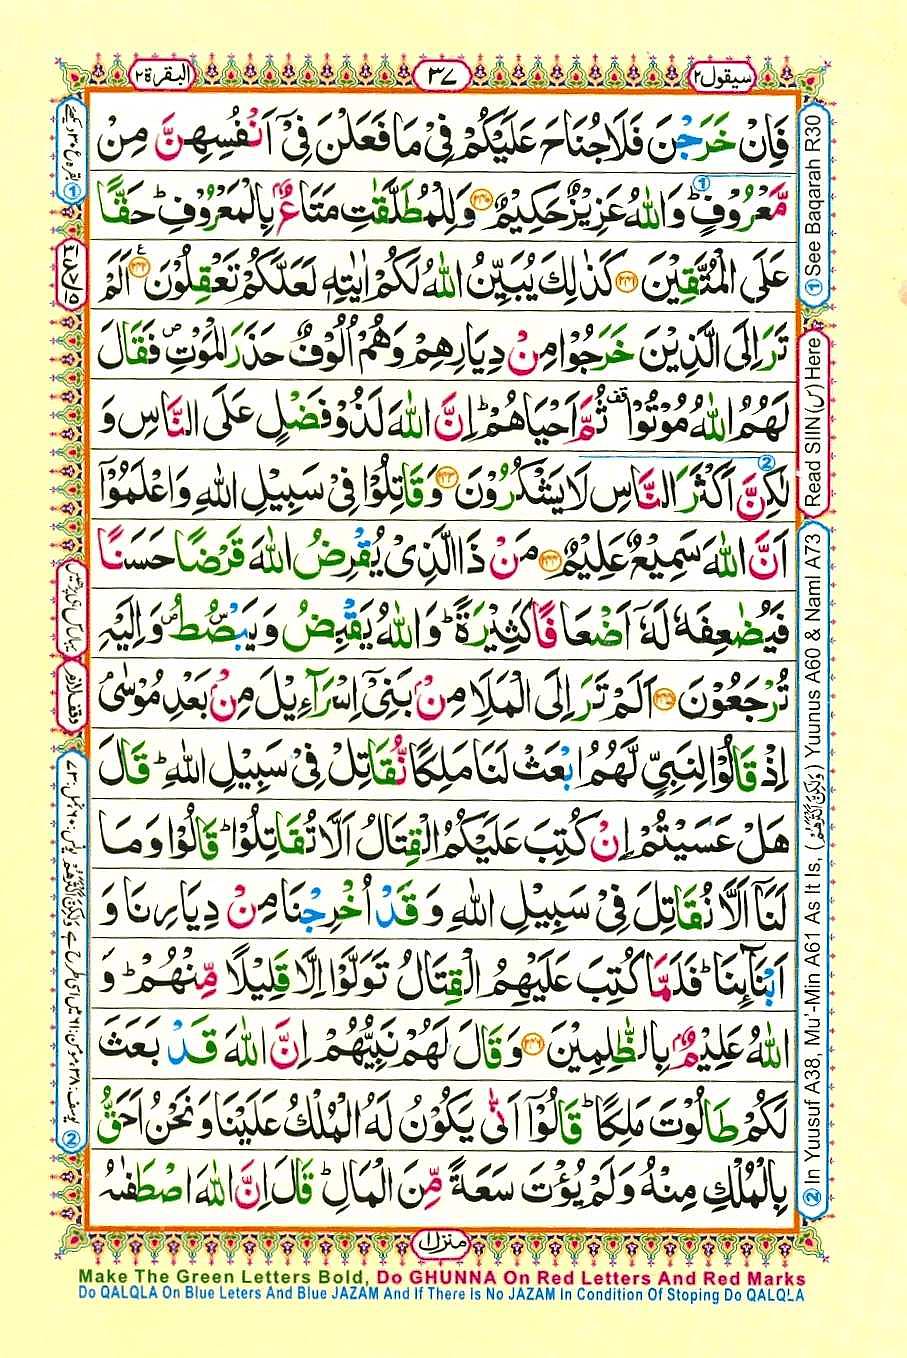 البقرة ٢
٣٧
سيقول ٢
فَاِنْ خَرَجْنَ فَلَا جُنَاحَ عَلَيْكُمْ فِيْ مَا فَعَلْنَ فِيْٓ اَنْفُسِهِنَّ مِنْ
مَّعْرُوْفٍ ؕ وَاللّٰهُ عَزِيْزٌ حَكِيْمٌ ﴿۲۴۰﴾ وَلِلْمُطَلَّقٰتِ مَتَاعٌۢ بِالْمَعْرُوْفِ ؕ حَقًّا
عَلَى الْمُتَّقِيْنَ ﴿۲۴۱﴾ كَذٰلِكَ يُبَيِّنُ اللّٰهُ لَكُمْ اٰيٰتِهٖ لَعَلَّكُمْ تَعْقِلُوْنَ ﴿۲۴۲﴾ اَلَمْ
تَرَ اِلَى الَّذِيْنَ خَرَجُوْا مِنْ دِيَارِهِمْ وَهُمْ اُلُوْفٌ حَذَرَ الْمَوْتِ ۪ فَقَالَ
لَهُمُ اللّٰهُ مُوْتُوْا ۟ ثُمَّ اَحْيَاهُمْ ؕ اِنَّ اللّٰهَ لَذُوْ فَضْلٍ عَلَى النَّاسِ وَ
لٰكِنَّ اَكْثَرَ النَّاسِ لَا يَشْكُرُوْنَ ﴿۲۴۳﴾ وَقَاتِلُوْا فِيْ سَبِيْلِ اللّٰهِ وَاعْلَمُوْٓا
اَنَّ اللّٰهَ سَمِيْعٌ عَلِيْمٌ ﴿۲۴۴﴾ مَنْ ذَا الَّذِيْ يُقْرِضُ اللّٰهَ قَرْضًا حَسَنًا
فَيُضٰعِفَهٗ لَهٗٓ اَضْعَافًا كَثِيْرَةً ؕ وَاللّٰهُ يَقْبِضُ وَيَبْصُۜطُ ۪ وَاِلَيْهِ
تُرْجَعُوْنَ ﴿۲۴۵﴾ اَلَمْ تَرَ اِلَى الْمَلَاِ مِنْۢ بَنِيْٓ اِسْرَآءِيْلَ مِنْۢ بَعْدِ مُوْسٰى
اِذْ قَالُوْا لِنَبِيٍّ لَّهُمُ ابْعَثْ لَنَا مَلِكًا نُّقَاتِلْ فِيْ سَبِيْلِ اللّٰهِ ؕ قَالَ
هَلْ عَسَيْتُمْ اِنْ كُتِبَ عَلَيْكُمُ الْقِتَالُ اَلَّا تُقَاتِلُوْا ؕ قَالُوْا وَمَا
لَنَآ اَلَّا نُقَاتِلَ فِيْ سَبِيْلِ اللّٰهِ وَ قَدْ اُخْرِجْنَا مِنْ دِيَارِنَا وَ
اَبْنَآئِنَا ؕ فَلَمَّا كُتِبَ عَلَيْهِمُ الْقِتَالُ تَوَلَّوْا اِلَّا قَلِيْلًا مِّنْهُمْ ؕ وَ
اللّٰهُ عَلِيْمٌۢ بِالظّٰلِمِيْنَ ﴿۲۴۶﴾ وَقَالَ لَهُمْ نَبِيُّهُمْ اِنَّ اللّٰهَ قَدْ بَعَثَ
لَكُمْ طَالُوْتَ مَلِكًا ؕ قَالُوْٓا اَنّٰى يَكُوْنُ لَهُ الْمُلْكُ عَلَيْنَا وَنَحْنُ اَحَقُّ
بِالْمُلْكِ مِنْهُ وَلَمْ يُؤْتَ سَعَةً مِّنَ الْمَالِ ؕ قَالَ اِنَّ اللّٰهَ اصْطَفٰىهُ
① See Baqarah R30
Read SIIN (س) Here
② In Yuusuf A38, Mu'-Min A61 As It Is, (وَلٰكِنَّ اَكْثَرَهُمْ) Yuunus A60 & Naml A73
منزل ١
Make The Green Letters Bold, Do GHUNNA On Red Letters And Red Marks
Do QALQLA On Blue Leters And Blue JAZAM And If There Is No JAZAM In Condition Of Stoping Do QALQLA